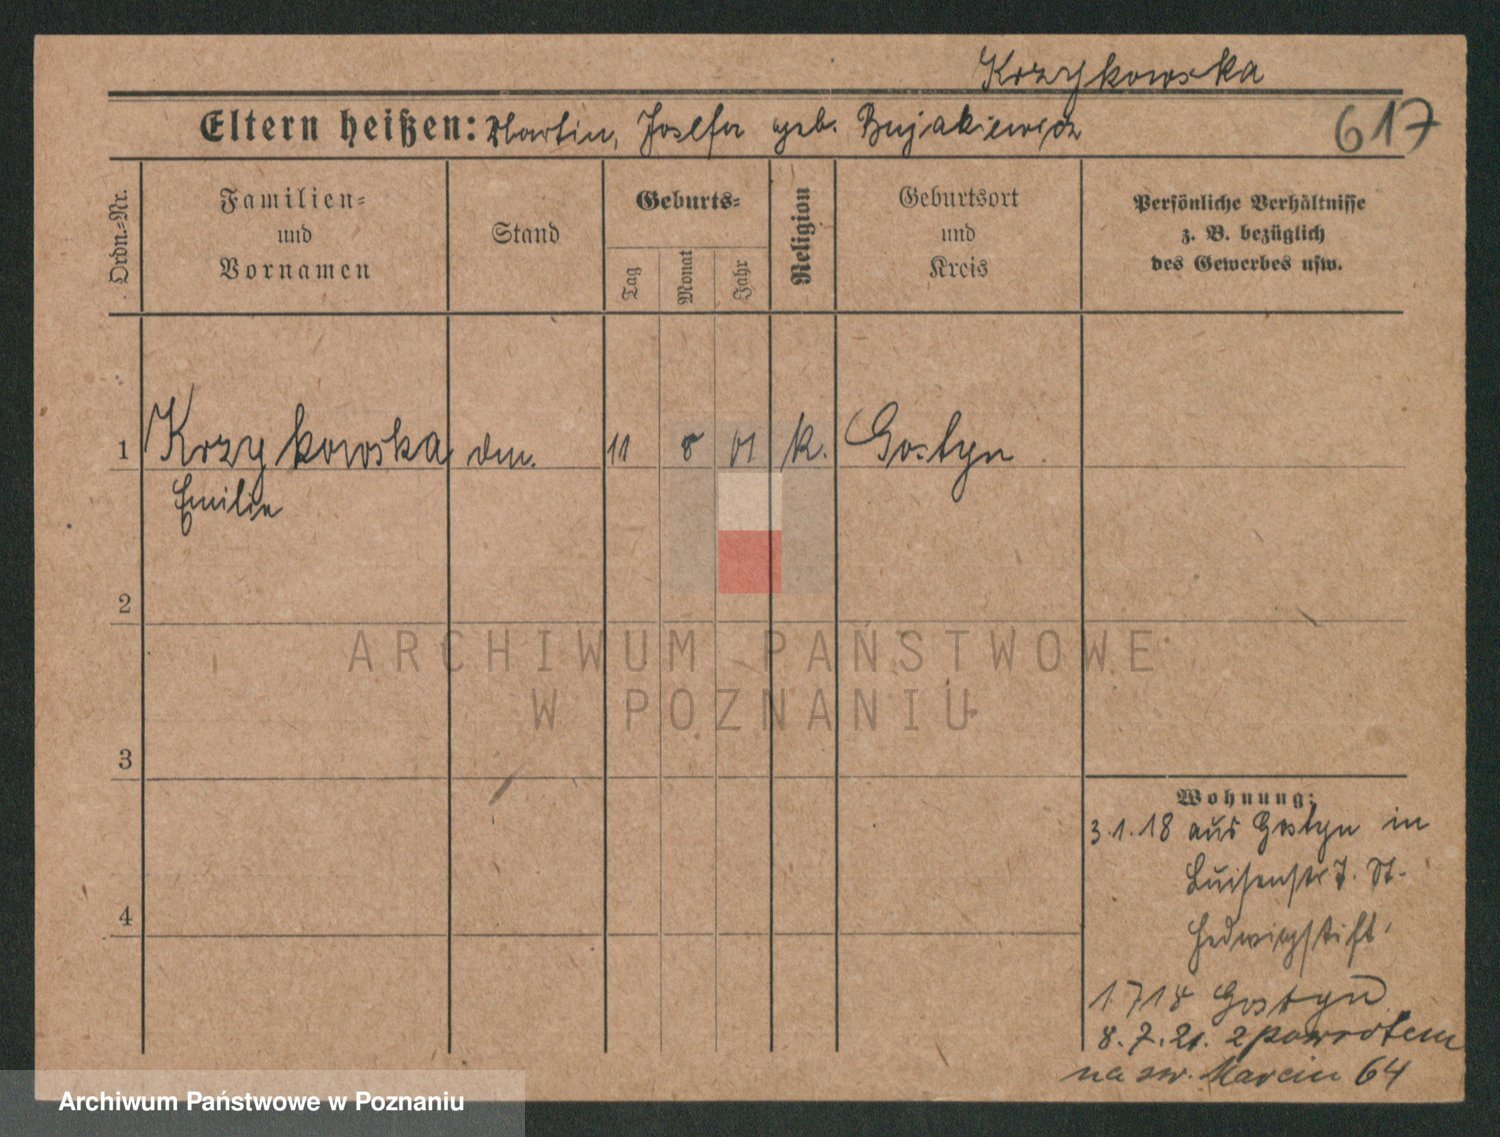 Krzykowska
Eltern heißen: Martin, Josefa geb. Bujakiewicz
617
Ordn.-Nr.
Familien-
und
Vornamen
Stand
Geburts-
Tag
Monat
Jahr
Religion
Geburtsort
und
Kreis
Persönliche Verhältnisse
z. B. bezüglich
des Gewerbes usw.
1 Krzykowska 11 8 01 k. Gostyn
Emilia
2
3
4
ARCHIWUM PAŃSTWOWE
W POZNANIU
Wohnung:
3.1.18 aus Gostyn in
Luisenstr St.
Hedwigstift
1.7.18 Gostyn
8.7.21. z powrotem
na św. Marcin 64
Archiwum Państwowe w Poznaniu